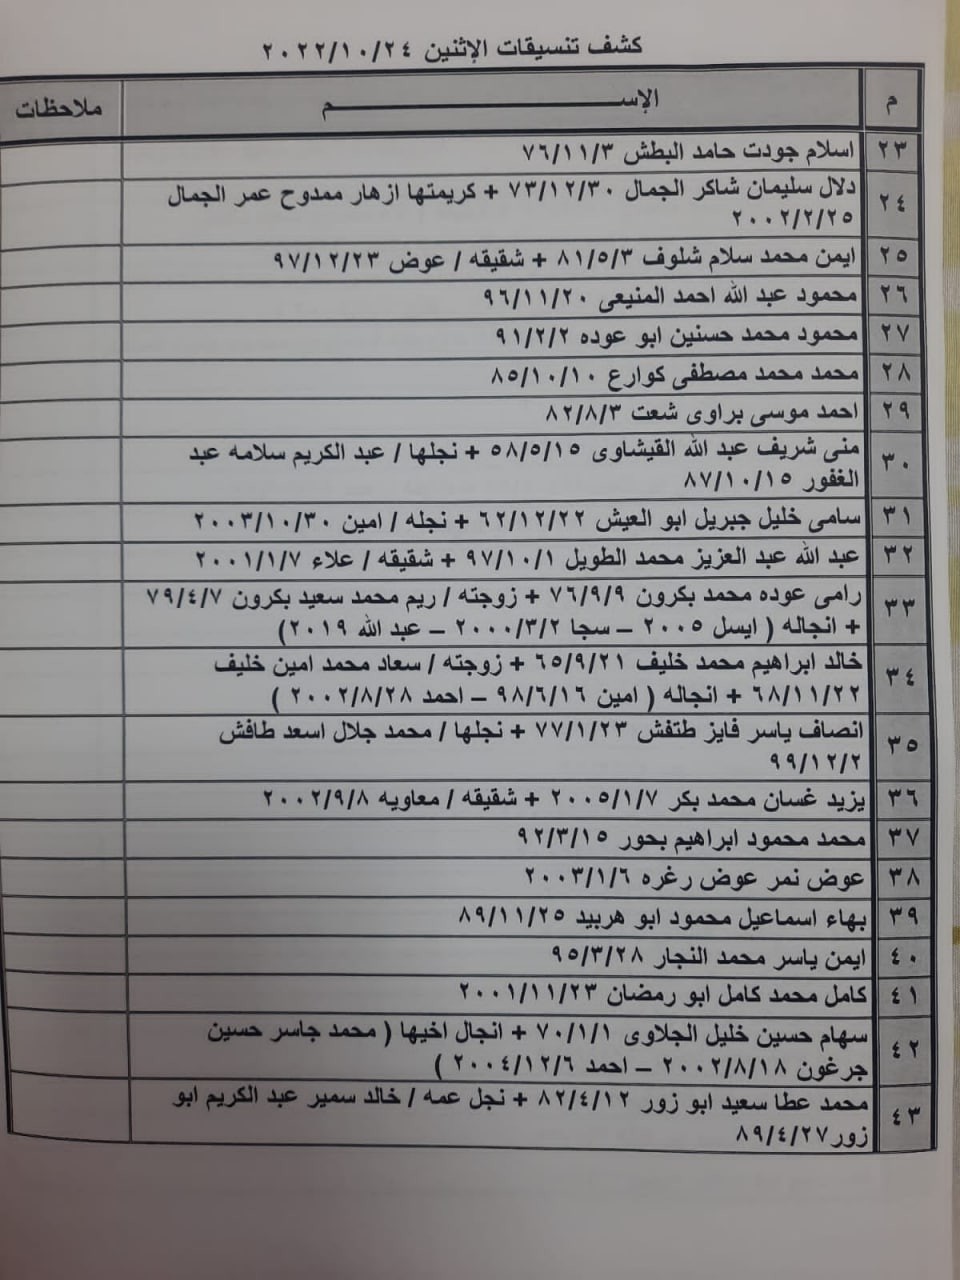 كشف تنسيقات الإثنين ٢٠٢٢/١٠/٢٤
م الإســــــــــــم ملاحظات
٢٣ اسلام جودت حامد البطش ٧٦/١١/٣
٢٤ دلال سليمان شاكر الجمال ٧٣/١٢/٣٠ + كريمتها ازهار ممدوح عمر الجمال
٢٠٠٢/٢/٢٥
٢٥ ايمن محمد سلام شلوف ٨١/٥/٣ + شقيقه / عوض ٩٧/١٢/٢٣
٢٦ محمود عبد الله احمد المنيعى ٩٦/١١/٢٠
٢٧ محمود محمد حسنين ابو عوده ٩١/٢/٢
٢٨ محمد محمد مصطفى كوارع ٨٥/١٠/١٠
٢٩ احمد موسى براوى شعت ٨٢/٨/٣
٣٠ منى شريف عبد الله القيشاوى ٥٨/٥/١٥ + نجلها / عبد الكريم سلامه عبد
الغفور ٨٧/١٠/١٥
٣١ سامى خليل جبريل ابو العيش ٦٢/١٢/٢٢ + نجله / امين ٢٠٠٣/١٠/٣٠
٣٢ عبد الله عبد العزيز محمد الطويل ٩٧/١٠/١ + شقيقه / علاء ٢٠٠١/١/٧
٣٣ رامى عوده محمد بكرون ٧٦/٩/٩ + زوجته / ريم محمد سعيد بكرون ٧٩/٤/٧
+ انجاله ( ايسل ٢٠٠٥ – سجا ٢٠٠٠/٣/٢ – عبد الله ٢٠١٩)
٣٤ خالد ابراهيم محمد خليف ٦٥/٩/٢١ + زوجته / سعاد محمد امين خليف
٦٨/١١/٢٢ + انجاله ( امين ٩٨/٦/١٦ – احمد ٢٠٠٢/٨/٢٨ )
٣٥ انصاف ياسر فايز طتفش ٧٧/١/٢٣ + نجلها / محمد جلال اسعد طافش
٩٩/١٢/٢
٣٦ يزيد غسان محمد بكر ٢٠٠٥/١/٧ + شقيقه / معاويه ٢٠٠٢/٩/٨
٣٧ محمد محمود ابراهيم بحور ٩٢/٣/١٥
٣٨ عوض نمر عوض رغره ٢٠٠٣/١/٦
٣٩ بهاء اسماعيل محمود ابو هربيد ٨٩/١١/٢٥
٤٠ ايمن ياسر محمد النجار ٩٥/٣/٢٨
٤١ كامل محمد كامل ابو رمضان ٢٠٠١/١١/٢٣
٤٢ سهام حسين خليل الجلاوى ٧٠/١/١ + انجال اخيها ( محمد جاسر حسين
جرغون ٢٠٠٢/٨/١٨ – احمد ٢٠٠٤/١٢/٦ )
٤٣ محمد عطا سعيد ابو زور ٨٢/٤/١٢ + نجل عمه / خالد سمير عبد الكريم ابو
زور٨٩/٤/٢٧